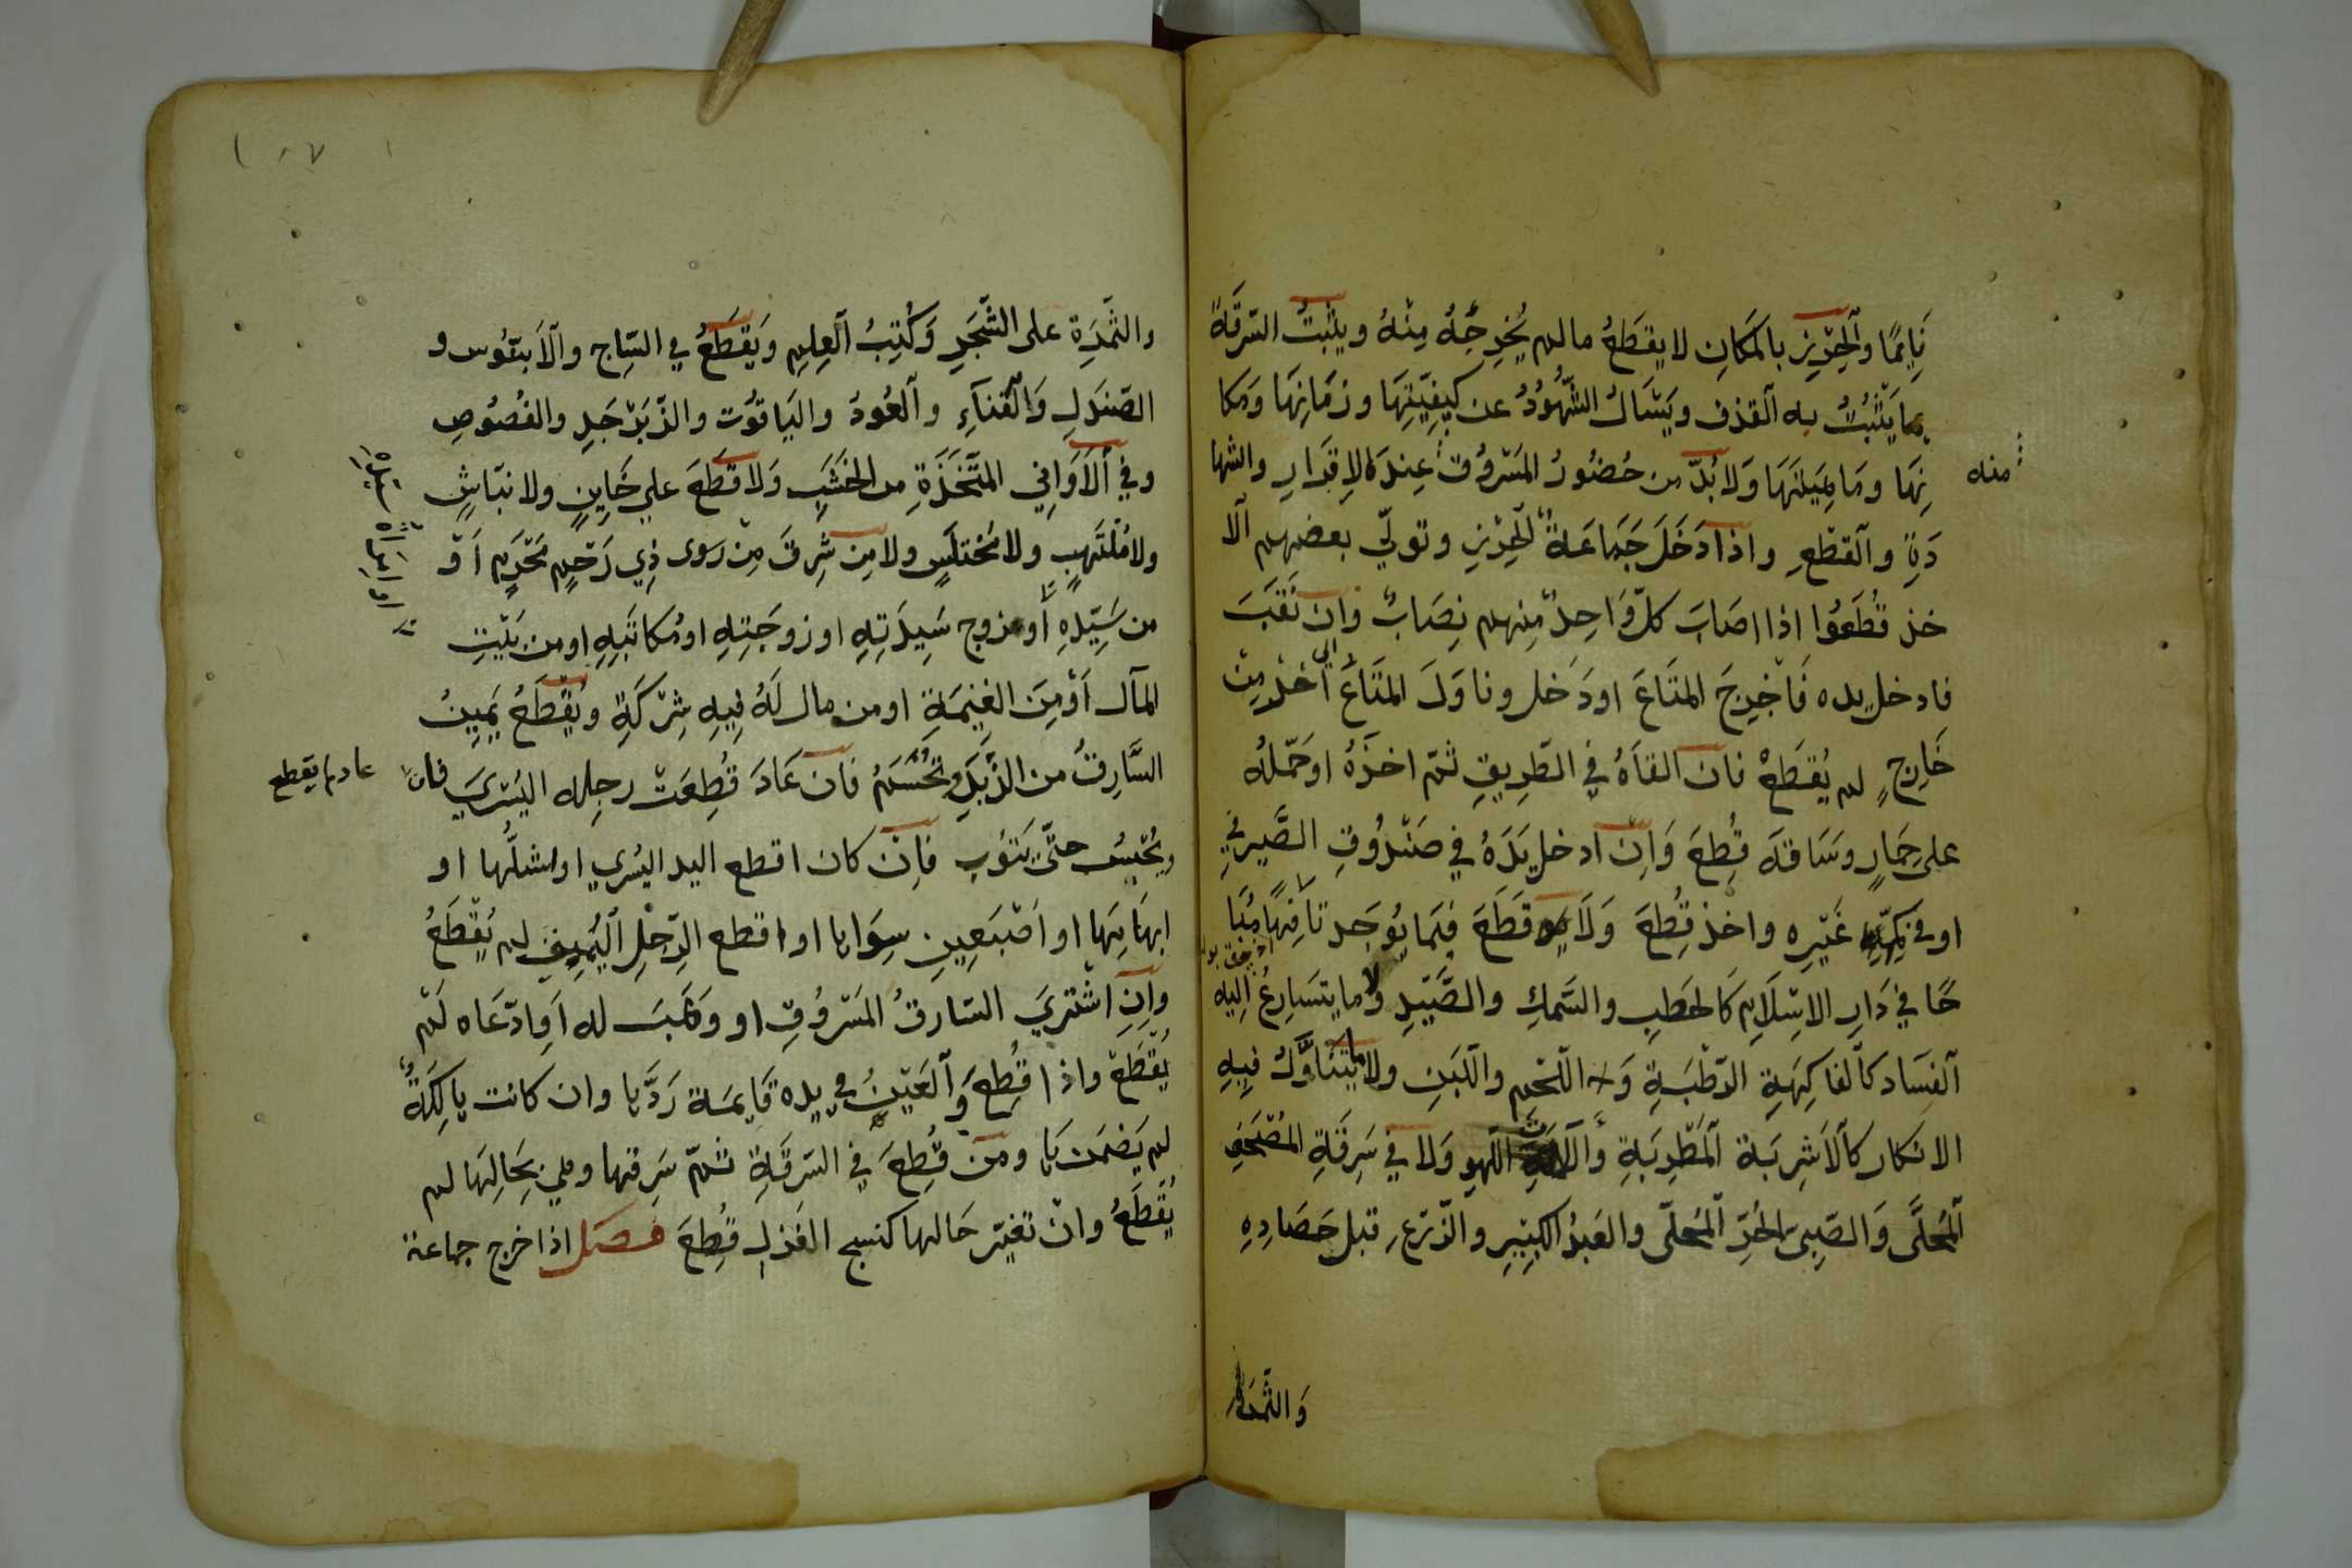 نَايِمًا وَٱلحِرْزِ بالمَكَانِ لا يقطَعُ مالم يُخرِجْهُ مِنْهُ ويثبتُ السَّرِقَةُ
بما يَثْبُتُ به ٱلقذف ويَسْأَلُ الشُّهُودُ عن كيفِيَّتِهَا وزمَانِهَا وَمَكا
نِهَا ومَاهِيَتِهَا وَلا بُدَّ من حُضُورُ المَسْرُوقِ عِندَ الاِقرَارِ والشها
منه
دَةِ وٱلقطعِ واذا دَخَلَ جَمَاعَةٌ الحِرْزِ وتولّي بعضهم ٱلا
خذ قُطِعُوا اذا اصَابَ كلّ وَاحِدٌ مِنهم نِصَابٌ وان نَقَبَ
فادخل يده فَأخرِجَ المتَاعَ اودَخل وناوَلَ المتَاعَ الي آخَرَ مِن
خَارِجٍ لم يُقطَعْ فان القَاهُ في الطَرِيقِ ثمّ اخذَهُ اوحَمّلهُ
على حِمَارٍ وسَاقَهُ قُطِعَ وَاِنْ ادخل يَدَهُ في صَنْدُوقِ الصَّيرفيِ
اوفي كُمِّهِ غَيْرِه واخذ قُطِعَ وَلَا قَطَعَ فيما يُوجَد تافِهًا مُبَا
حًا في دَارِ الاسْلَامِ كالحَطبِ والسَّمكِ والصَّيْدِ ولا ما يتسَارِعُ اِليه
ٱلفسَاد كالفاكِهَةِ الرَّطْبَةِ وَ اللّحْمِ واللّبَنِ ولا ما يتَنَاوَلُ فيِهِ
الانكار كاٱلاَشرِبَة ٱلمَطْرِبَةِ وَٱلاتِ اللّهوِ وَلا في سَرِقَةِ المُصْحَفِ
ٱلمُحَلَّى وَالصَّبِىّ الحُرِّ ٱلمُحلّى والعَبدُ الكبِيِرِ والزّرعِ قبل حَصَادِهِ
وَالثَّمَرَةِ
والثَّمَرَةِ على الشَّجَرِ وَكُتِبُ ٱلعِلِمِ وَيَقطَعُ في السَّاجِ وٱلاَبنُوس و
الصَندَلِ وَٱلقنآءِ وٱلعُودُ واليَاقوُت والزّبَرْجَدِ والفُصُوصِ
وفي ٱلاَوَانِي المتَّخذَةِ من الخشَبِ وَلا قَطَعَ على خَايِنٍ ولا نبَّاشٍ
ولا مُنْتَهِبٍ ولا مُختلَسٍ ولا مِن سَرِقَ مِنْ رَوى ذِي رَحْمٍ مَحْرَمٍ اَوْ
من سَيِّدِهِ أو زوج سَيِدَتِهِ او زوجَتِهِ او مُكاتَبِهِ او من بَيْتِ
المآل اَوْمِنَ الغنِيمَةِ اومن مال لَهُ فِيهِ شِرْكَةِ ويُقْطَعُ يَمِينُ
السَّارِقُ من الزَّنَدِ وتُحْسَمُ فان عَادَ قُطِعَتْ رجِله اليُسْرىَ فان
عادلم يقطع
ويُحْبِسُ حتَّى يَتوُب فاِنْ كان اقطع اليد اليُسْري اواشلَّها او
ابهَامِهَا او اَصْبَعِينِ سِوَاها او اقطع الرّجْلِ اليُمِنى لم يُقْطَعُ
وانِ اشْتريَ السَّارقُ المَسْرُوقِ او وَهَبَ له اَوِادّعَاه لَم
يُقْطَعْ واذا قُطِعَ وَٱلعَيْنُ في يده قَايِمَة رَدَّهَا وان كانت هالِكَةُ
لم يَضمَنهَا ومَن قُطِعَ في السَرِقَةِ ثمّ سَرِقها وهي بِحَالِهَا لم
يُقْطَعُ وان تغيّر حَالها كنسج الغَزلِ قُطِعَ فصل اذا خرج جماعة